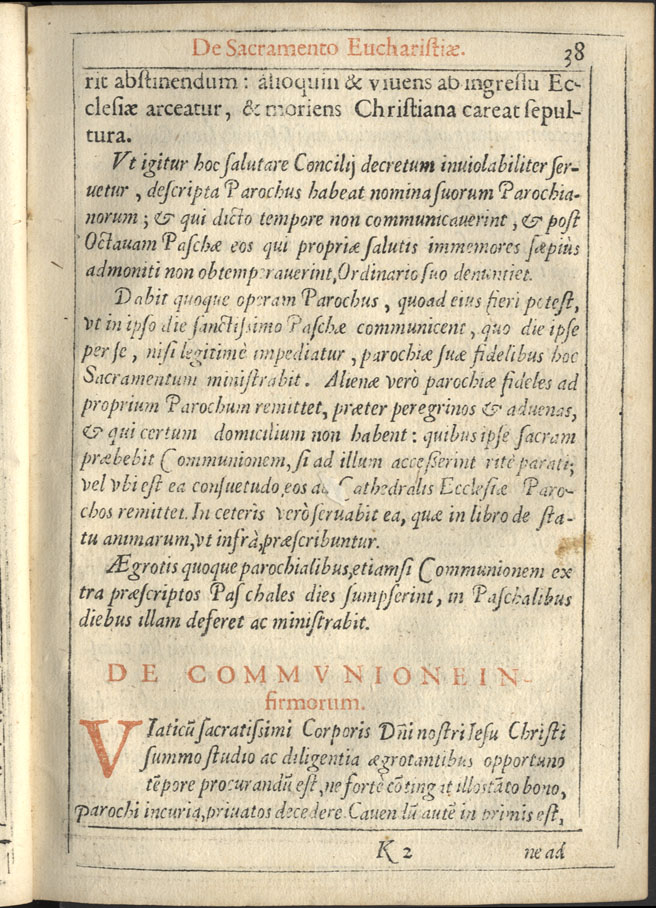 De Sacramento Euchariſtiæ.
38
rit abſtinendum: alioquin & viuens ab ingreſſu Ec-
cleſiæ arceatur, & moriens Chriſtiana careat ſepul-
tura.
Vt igitur hoc ſalutare Concilij decretum inuiolabiliter ſer-
uetur, deſcripta Parochus habeat nomina ſuorum Parochia-
norum; & qui dicto tempore non communicauerint, & poſt
Octauam Paſchæ eos qui propriæ ſalutis immemores ſæpiùs
admoniti non obtemperauerint, Ordinario ſuo denuntiet.
Dabit quoque operam Parochus, quoad eius fieri poteſt,
vt in ipſo die ſanctiſsimo Paſchæ communicent, quo die ipſe
per ſe, niſi legitimè impediatur, parochiæ ſuæ fidelibus hoc
Sacramentum miniſtrabit. Alienæ verò parochiæ fideles ad
proprium Parochum remittet, præter peregrinos & aduenas,
& qui certum domicilium non habent: quibus ipſe ſacram
præbebit Communionem, ſi ad illum acceſſerint ritè parati;
vel vbi eſt ea conſuetudo, eos ad Cathedralis Eccleſiæ Paro-
chos remittet. In ceteris verò ſeruabit ea, quæ in libro de ſta-
tu animarum, vt infrà, præſcribuntur.
Ægrotis quoque parochialibus, etiamſi Communionem ex
tra præſcriptos Paſchales dies ſumpſerint, in Paſchalibus
diebus illam deferet ac miniſtrabit.
DE COMMVNIONE IN-
firmorum.
VIaticũ ſacratiſsimi Corporis Dñi noſtri Ieſu Chriſti
ſummo ſtudio ac diligentia ægrotantibus opportuno
tẽpore procurandũ eſt, ne fortè cõtingat illos tãto bono,
parochi incuria, priuatos decedere. Cauendũ autẽ in primis eſt,
K 2
ne ad